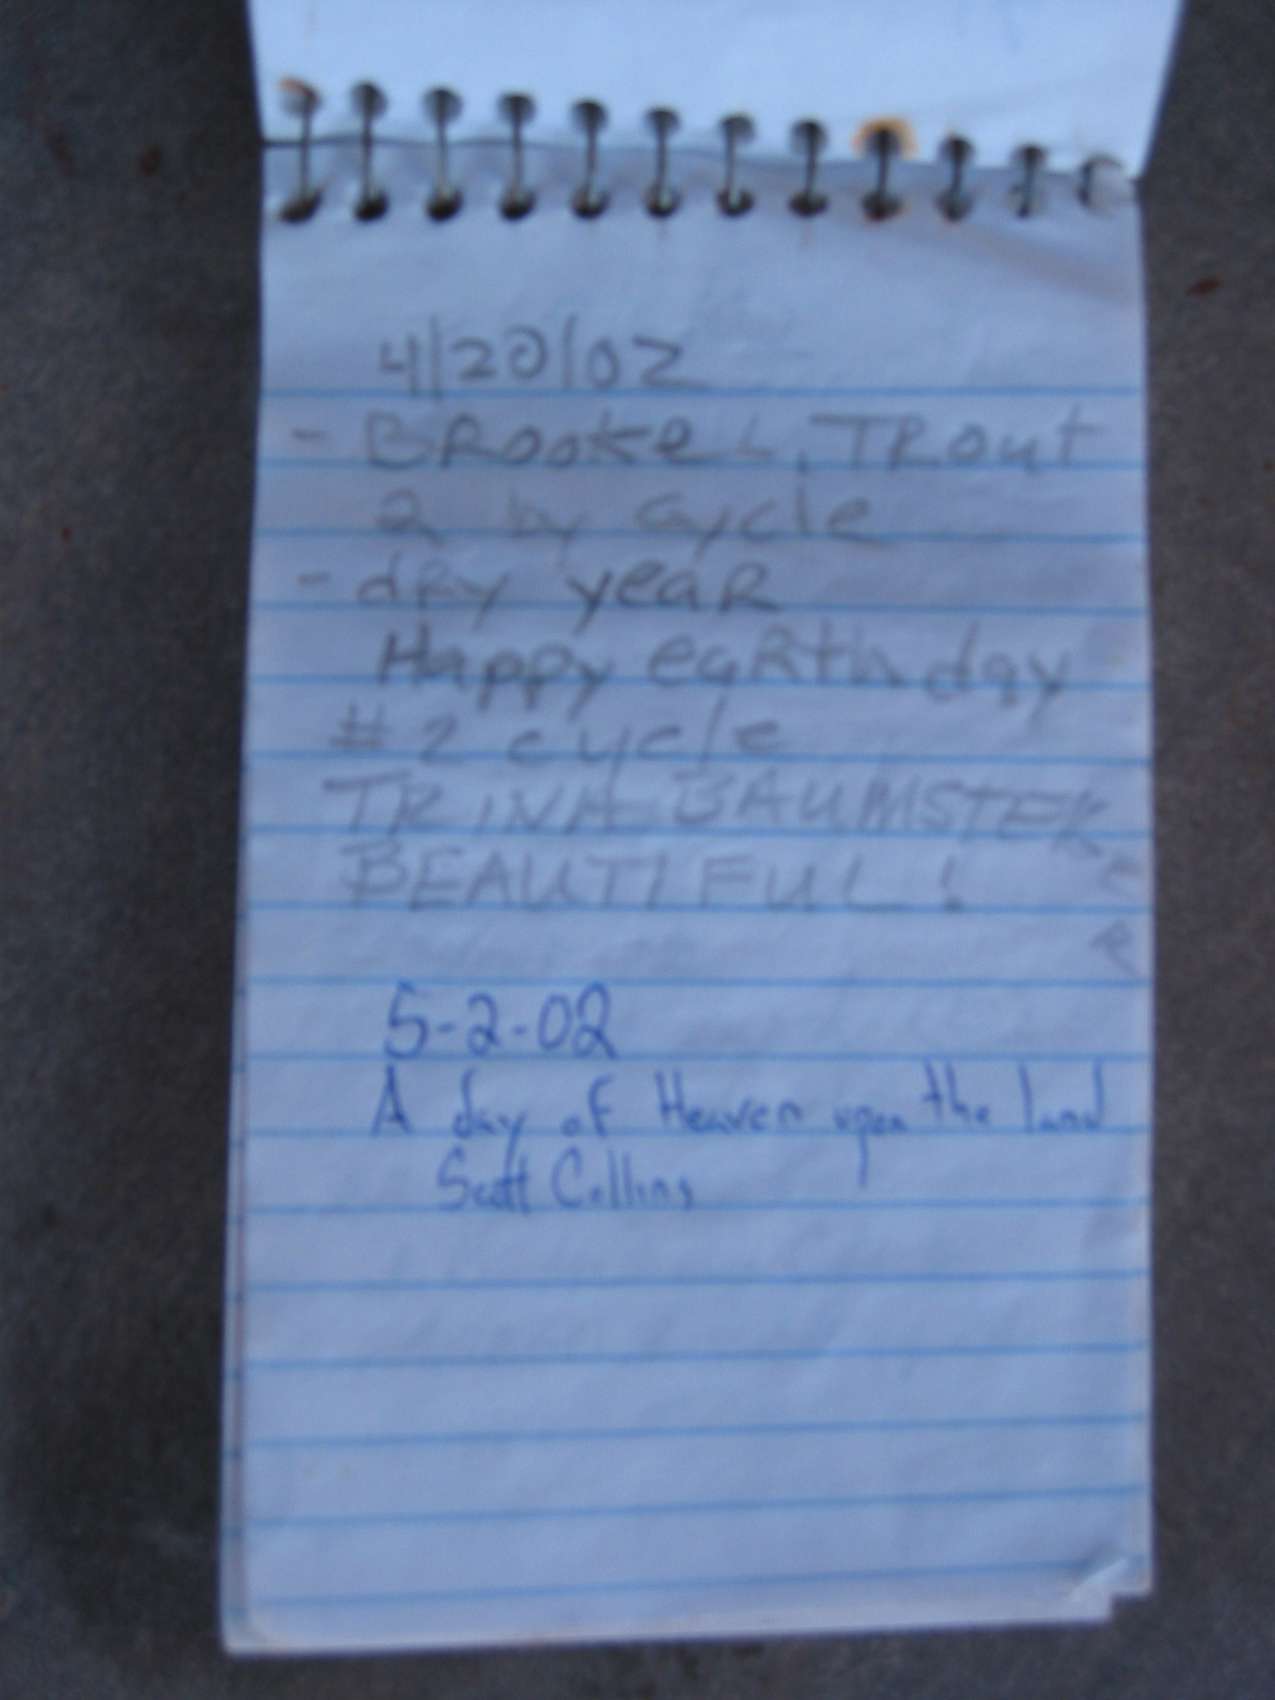 4/20/02
- BRooke L. TRout
2 by cycle
- dRy yeaR
Happy eaRth day
#2 cycle
TRINA BAUMSTEKER
BEAUTIFUL!
5-2-02
A day of Heaven upon the land
Scott Collins